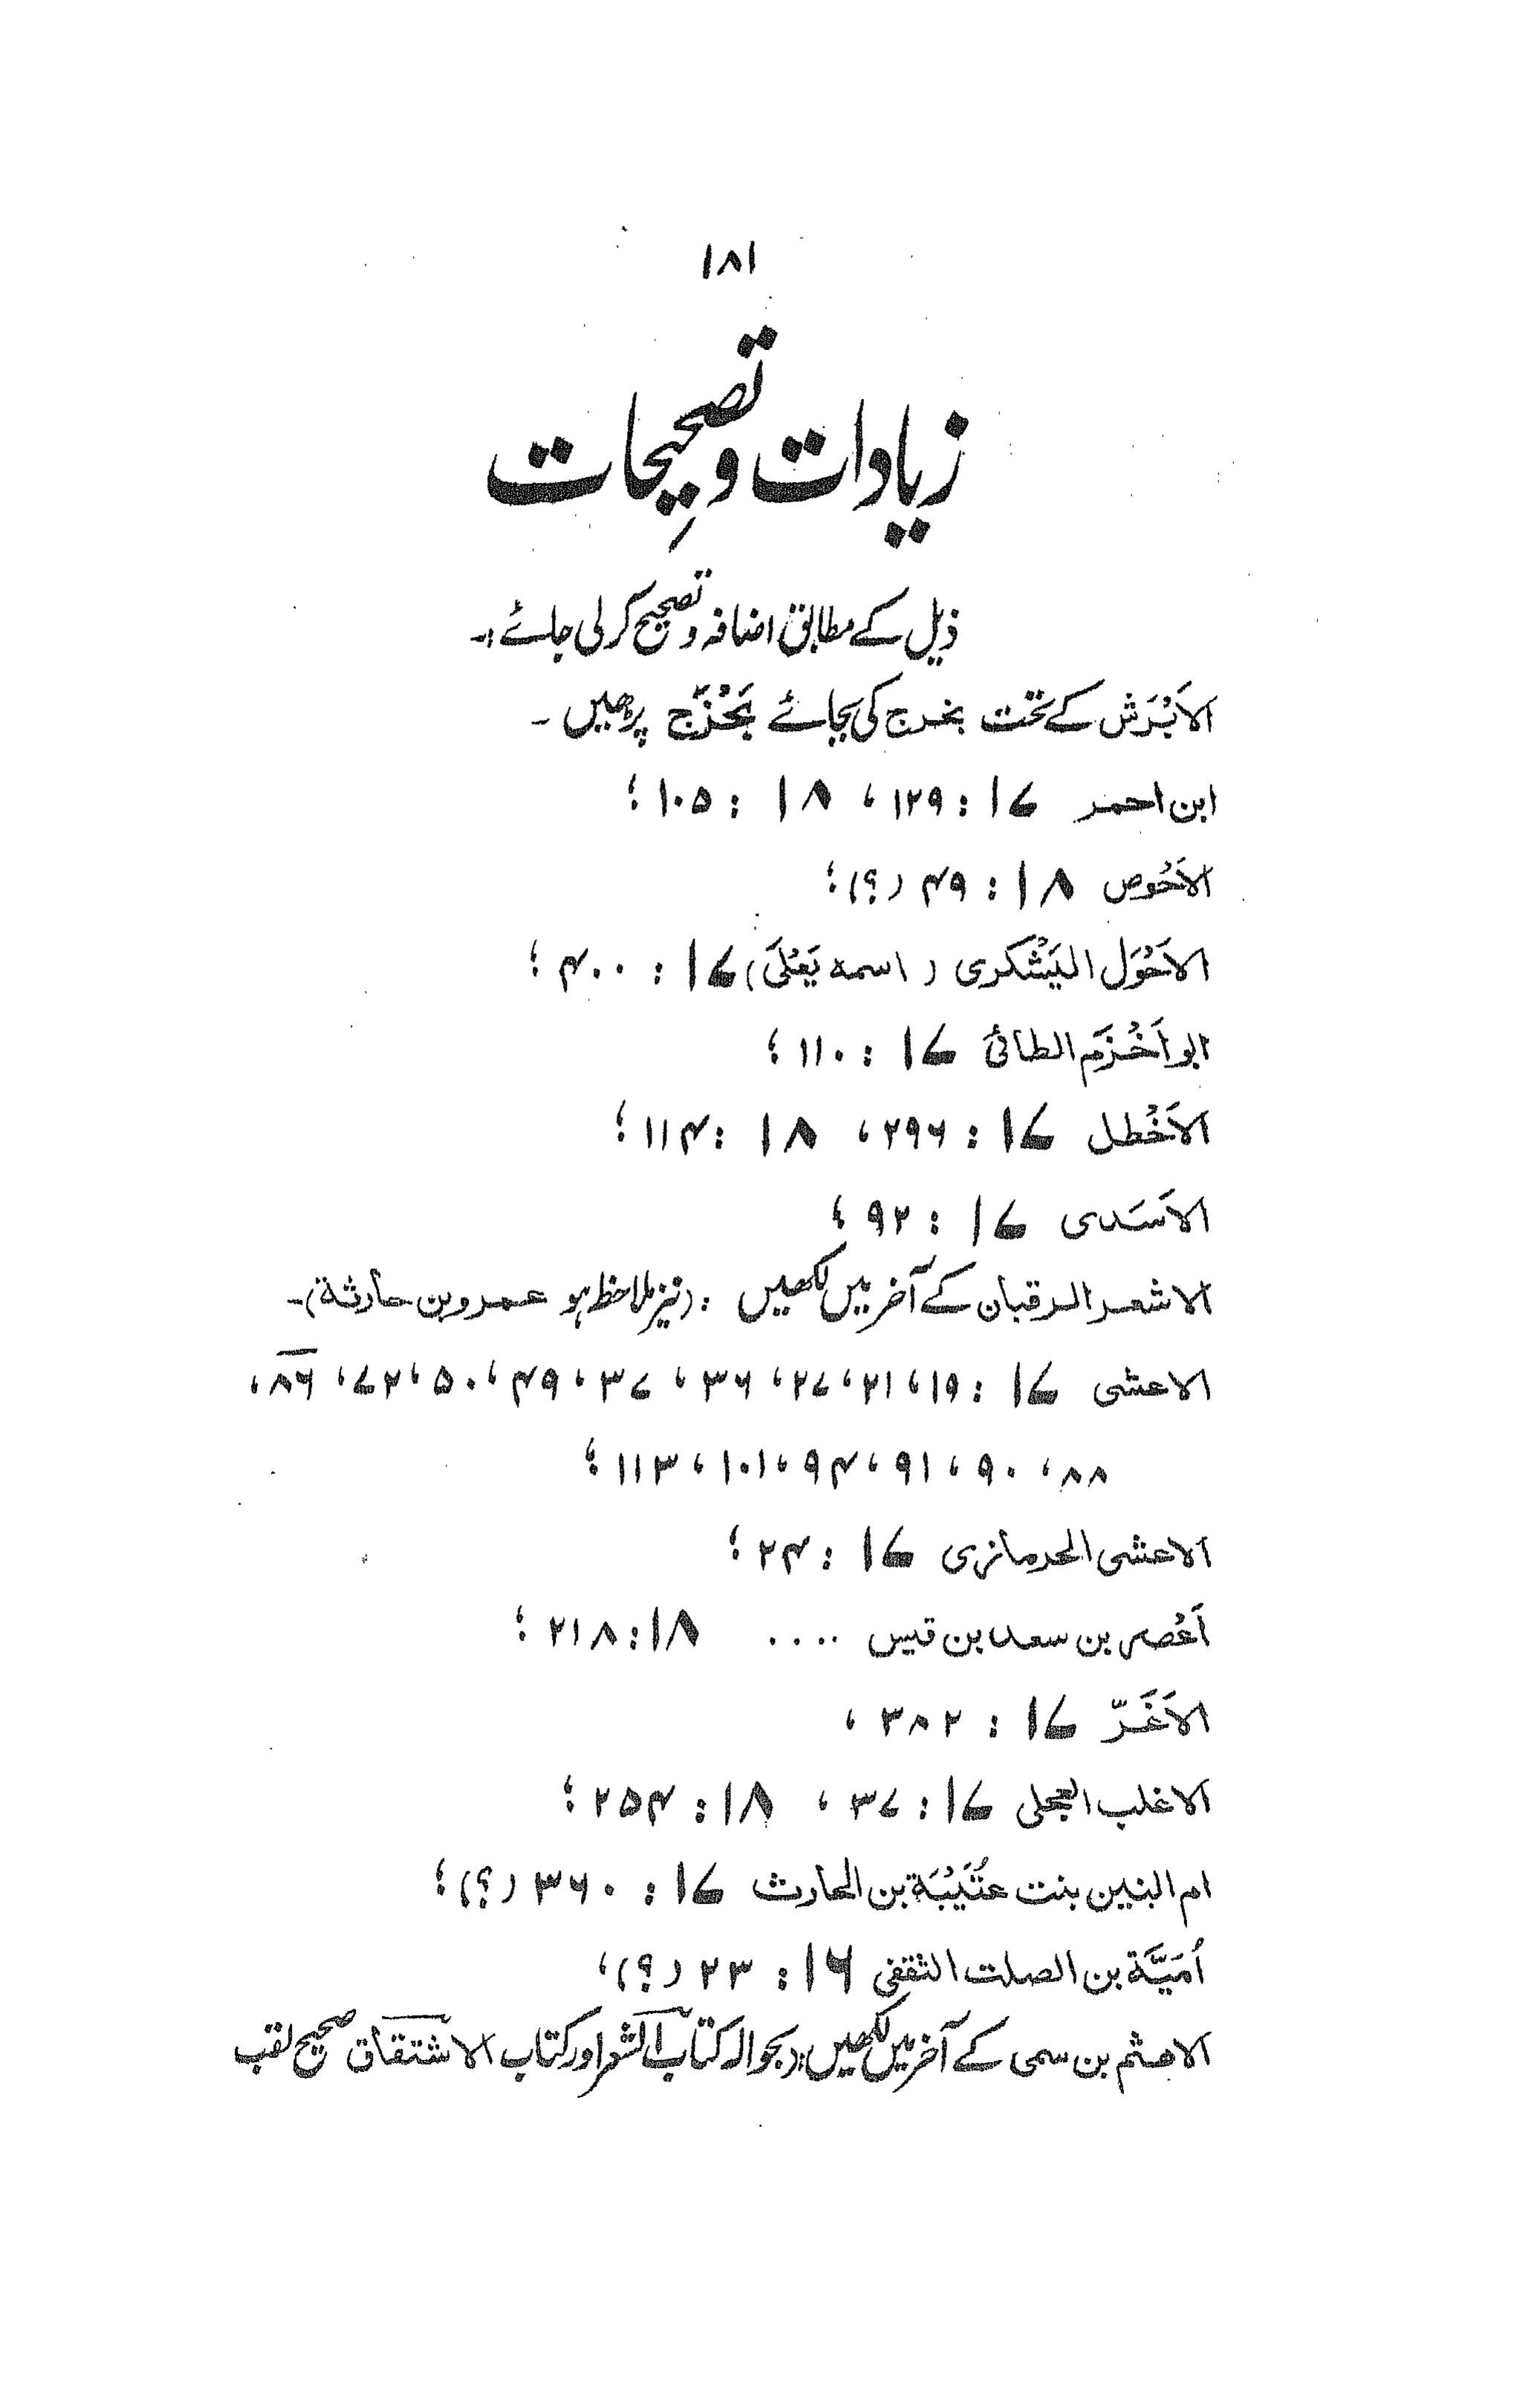 ۱۸۱
زیادات و تصحیحات
ذیل کے مطابق اضافہ و تصحیح کر لی جائے :۔
الاَبْرَش کے تحت بخرج کی بجائے بَحْزَج پڑھیں ۔
ابن احمر ۱۷ : ۱۲۹، ۱۸ : ۱۰۵ ؛
الاَحْوص ۱۸ : ۴۹ (؟) ؛
الاَحْوَل الیَشْکری (اسمہ یَعْلَی) ۱۷ : ۴۰۰ ؛
ابو اَخْزَم الطائی ۱۷ : ۱۱۰ ؛
الاَخْطل ۱۷ : ۲۹۶، ۱۸ : ۱۱۴ ؛
الاَسَدی ۱۷ : ۹۲ ؛
الاشعر الرقبان کے آخر میں لکھیں : (نیز ملاحظہ ہو عمرو بن حارثة)۔
الاعشی ۱۷ : ۱۹، ۲۱، ۲۷، ۳۶، ۳۷، ۴۹، ۵۰، ۷۲، ۸۶،
۸۸، ۹۰، ۹۱، ۹۴، ۱۰۱، ۱۱۳ ؛
الاعشی الحرمازی ۱۷ : ۲۴ ؛
اَعْصر بن سعد بن قیس .... ۱۸ : ۲۱۸ ؛
الاَغَرّ ۱۷ : ۳۸۲ ،
الاغلب العجلی ۱۷ : ۳۷ ، ۱۸ : ۲۵۴ ؛
ام البنین بنت عُتَیْبَة بن الحارث ۱۷ : ۳۶۰ (؟) ؛
اُمَیَّة بن الصلت الثقفی ۱۶ : ۲۳ (؟) ،
الاهثم بن سمی کے آخر میں لکھیں : (بحوالہ کتاب الشعر اور کتاب الاشتقاق صحیح لقب